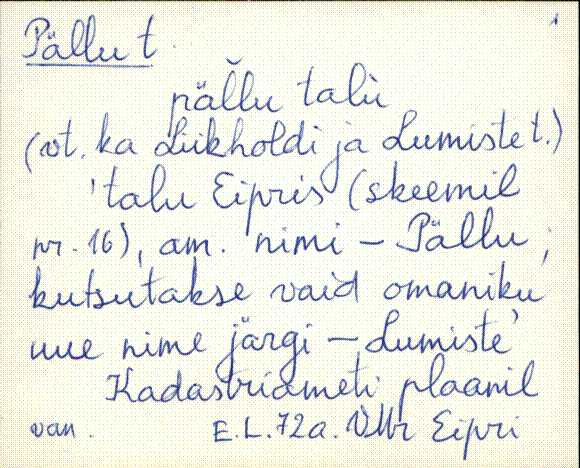 Pällu t.
päl̆lu talù
(vt. ka Liikholdi ja Lumiste t.)
'talu Eipris (skeemil
nr. 16), am. nimi – Pällu;
kutsutakse vaid omaniku
uue nime järgi – Lumiste'
Kadastriameti plaanil
van. E.L. 72a. VMr Eipri